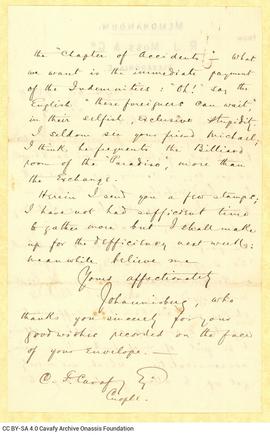 the "Chapter of Accidents"! What
we want is the immediate payment
of the Indemnities: "Oh!" say the
English "these foreigners can wait,"
in their selfish, exclusive stupidity.
I seldom see your friend Michael;
I think, he frequents the Billiard
room of the "Paradiso", more than
the Exchange.
Herein I send you a few stamps;
I have not had sufficient time
to gather more but I shall make
up for the deficiency next week:
meanwhile believe me
Yours affectionately
Johannisberg, who
thanks you sincerely for your
good wishes recorded on the face
of your Envelope.—
C. F. Cavafy Eq.
Cople.
CC BY-SA 4.0 Cavafy Archive Onassis Foundation